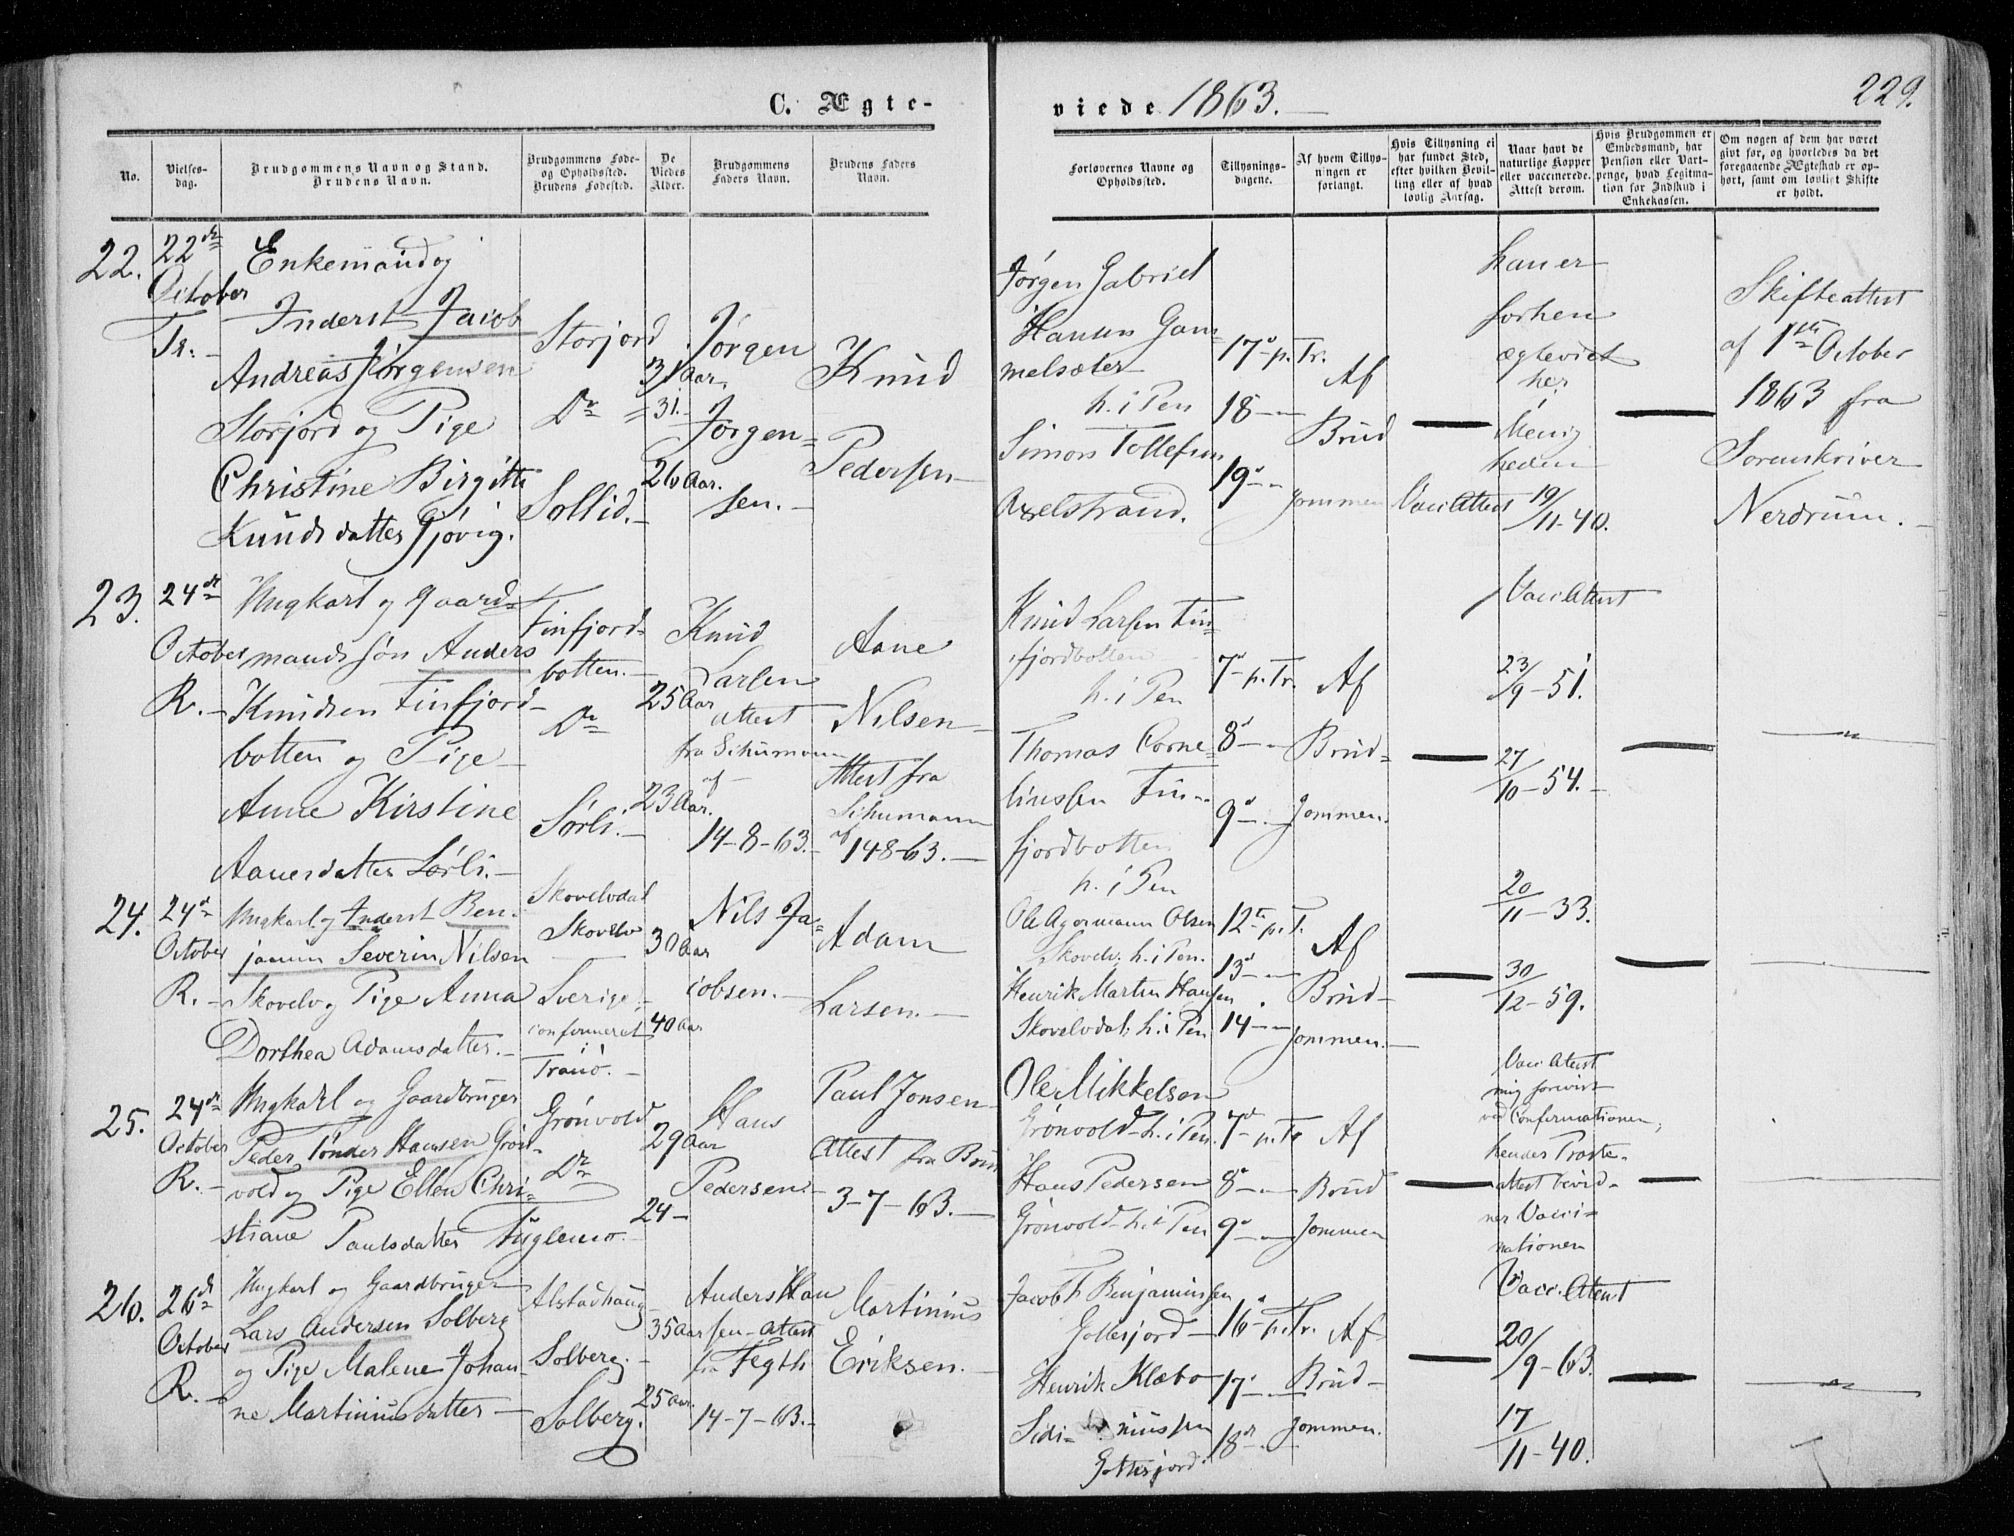 C. Ægte-
viede 1863.
229.
No.
Vielses-
dag.
Brudgommens Navn og Stand.
Brudens Navn.
Brudgommens Føde-
og Opholdssted.
Brudens Fødested.
De
Viedes
Alder.
Brudgommens
Faders Navn.
Brudens Faders
Navn.
Forlovernes Navne og
Opholdssted.
Tillysnings-
dagene.
Af hvem Tillys-
ningen er
forlangt.
Hvis Tillysning ei
har fundet Sted,
efter hvilken Bevil-
ling eller af hvad
lovlig Aarsag.
Naar havt de
naturlige Kopper
eller vaccinerede.
Attest derom.
Hvis Brudgommen er
Embedsmand, har
Pension eller Vart-
penge, hvad Legitma-
tion for Indskud i
Enkekassen.
Om nogen af dem har været
givt før, og hvorledes da det
foregaaende Ægteskab er op-
hørt, samt om lovligt Skifte
er holdt.
22.
22de
October
Tr.-
Enkemand og
Inderst Jacob
Andreas Jørgensen
Storjord og Pige
Christine Birgitte
Knudsdatter Gjövig.
Storjord
Do
Sollid.-
31 Aar.
= 31.-
26 Aar.
Jørgen
Jørgen=
sen.-
Knud
Pedersen-
Jørgen Gabriel
Hansen Gam
melsæter
h. i Pen
Simon Tollefsen
Axelstrand.
17d p. Tr.
18 - -
19d - -
Af
Brud
gommen
han er
forhen
ægteviet
her i
Menig
heden
Vacc Attest 19/11-40.
Skifteattest
af 1ste October
1863 fra
Sorenskriver
Nerdrum.-
23.
24de
October
R.-
Ungkarl og Gaard-
mandssøn Anders
Knudsen Finfjord-
botten og Pige-
Anne Kirstine
Aanesdatter Sørli.-
Finfjord-
botten.-
Do
Sørli.-
25 Aar
23 Aar.
Knud
Larsen
attest
fra Schumann
af -
14-8-63.-
Aane
Nilsen-
Attest fra
Schumann
af 14-8-63.-
Knud Larsen Fin-
fjordbotten
h. i Pen
Thomas Corne-
liussen Fin-
fjordbotten
h. i Pen
7d - p. Tr.
8d - -
9d - -
Af
Brud-
gommen.
Vacc Attest
23/9-51.
27/10-54.-
24.
24d
October
R.-
Ungkarl og Inderst Ben-
jamin Severin Nilsen
Skovelv og Pige Anna
Dorthea Adamsdatter.-
Skovelvdal
Skovelv
Sverige.-
confirmeret
i
Tranö.-
30 Aar
40 Aar
Nils Ja-
cobsen.-
Adam
Larsen.-
Ole Agormann Olsen
Skovelv. h. i Pen.
Henrik Martin Hansen
Skovelvdal. h. i Pen
12te p. T.
13d - -
14 - -
Af
Brud-
gommen.-
20/11-33.
30/12-59.
25.
24de
October
R.-
Ungkarl og Gaardbruger
Peder Tønder Hansen Grön-
vold og Pige Ellen Chri-
stiane Paulsdatter
Grönvold
Do
Fuglemo.-
29 Aar
24-
Hans
Pedersen.-
Paul Jonsen-
Attest fra Brun
3-7-63.-
Ole Mikkelsen
Grönvold- h. i Pen.
Hans Pedersen
Grönvold- h. i Pen
7d - p. Tr
8d - -
9d - -
Af
Brud
gommen
Vacc Attest
mig forevist
ved Confirmationen,
hendes Præste-
attest bevid-
ner Vacci-
nationen
26.
26d
October
R.-
Ungkarl og Gaardbruger
Lars Andersen Solberg
og Pige Malene Johan-
ne Martiniusdatter-
Alstadhaug-
Solberg.-
Solberg.
35 Aar
25 Aar.
Anders Han
sen- attest
fra Fegth
14-7-63.-
Martinius
Eriksen.-
Jacob T Benjaminsen
Gottesjord-
Henrik Klæbo
Gottesjord.
16d - p. Tr.
17d - -
18de -
Af
Brud-
gommen.
Vacc. Attest
20/9-63.
17/11-40.